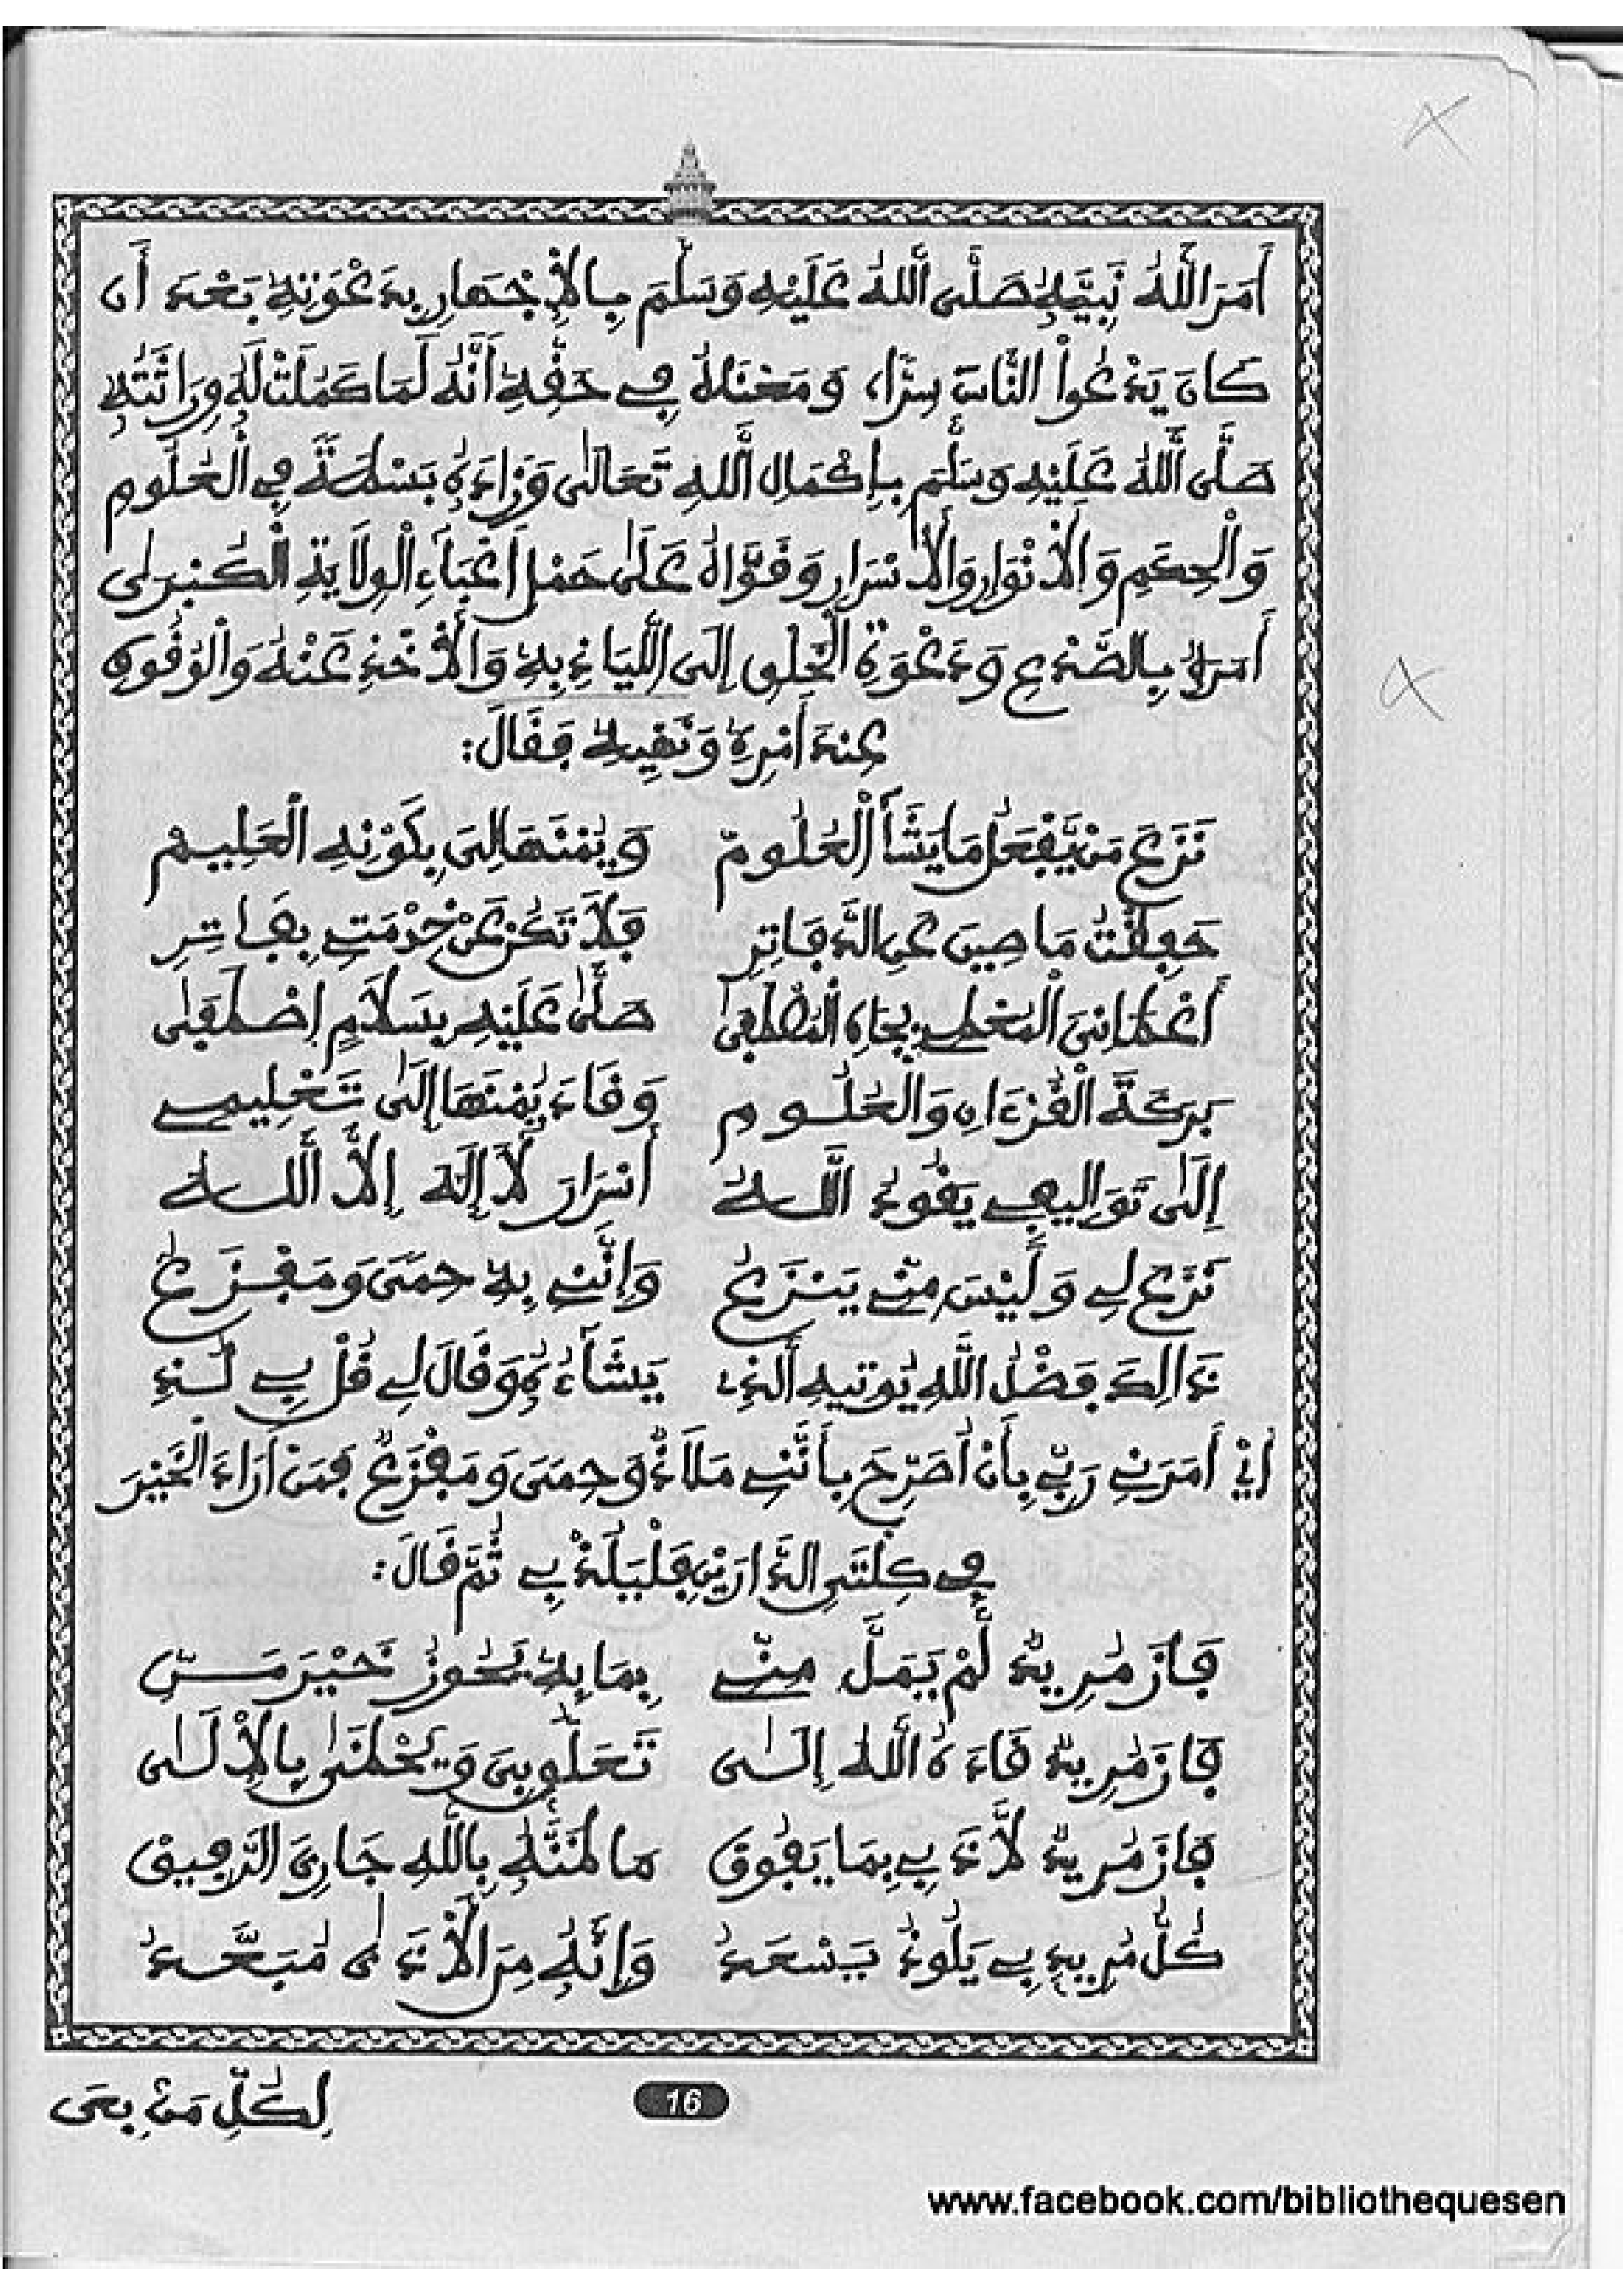 أَمَرَ اللَّهُ نَبِيَّهُ صَلَّى اللَّهُ عَلَيْهِ وَسَلَّمَ بِالْإِجْهَارِ بِدَعْوَتِهِ بَعْدَ أَن
كَانَ يَدْعُوا النَّاسَ سِرًّا، وَمَعْنَاهُ فِي حَقِّهِ أَنَّهُ لَمَا كَمُلَتْ لَهُ وِرَاثَتُهُ
صَلَّى اللَّهُ عَلَيْهِ وَسَلَّمَ بِإِكْمَالِ اللَّهِ تَعَالَى وَزَادَهُ بَسْطَةً فِي الْعُلُومِ
وَالْحِكَمِ وَالْأَنْوَارِ وَالْأَسْرَارِ وَقَوَّاهُ عَلَى حَمْلِ أَعْبَاءِ الْوِلَايَةِ الْكُبْرَى
أَمَرَهُ بِالصَّدْعِ وَدَعْوَةِ الْخَلْقِ إِلَى اللِّيَاذِ بِهِ وَالْأَخْذِ عَنْهُ وَالْوُقُوفِ
عِندَ أَمْرِهِ وَنَهْيِهِ فَقَالَ:
نَزَعَ مَنْ يَفْعَلُ مَا يَشَا الْعُلُومْ وَيُمْنَهَا لِيَ بِكَوْنِهِ الْعَلِيمْ
جَعِلْتُ مَاحِيَ عِي الدَّفَاتِرِ فَلَا تَكُن عَنْ خِدْمَتِي بِفَاتِرِ
أَعْطَانِيَ الْمُعْطِي بِجَاهِ الْمُصْطَفَى صَلَّى عَلَيْهِ بِسَلَامٍ اصْطَفَى
بَرَكَةَ الْقُرْءَانِ وَالْعُلُومِ وَقَادَ يُمْنَهَا إِلَى تَعْلِيمِي
إِلَى تَوَالِيفِي يَقُودُ اللَّهُ أَسْرَارَ لَا إِلَهَ إِلَّا اللَّهُ
نَزَعَ لِي وَلَيْسَ مِنِّي يَنزَعُ وَإِنَّنِي بِهِ حِمًى وَمَفْزَعُ
ذَالِكَ فَضْلُ اللَّهِ يُوتِيهِ الَّذِي يَشَاءُهُ وَقَالَ لِي قُلْ بِي لُذِ
أَيْ أَمَرَنِي رَبِّي بِأَنْ أُصَرِّحَ بِأَنَّنِي مَلَاذٌ وَحِمًى وَمَفْزَعٌ فَمَنْ أَرَادَ الْخَيْرَ
فِي كِلْتَيِ الدَّارَيْنِ فَلْيَلُذْ بِي ثُمَّ قَالَ:
فَازَ مُرِيدٌ لَمْ يَمَلَّ مِنِّي بِمَا بِهِ يَحُوزُ خَيْرَ مَنِّ
فَازَ مُرِيدٌ قَادَهُ اللَّهُ إِلَى تَعَلُّقٍ بِي وَيُحْظَى بِالْإِلَى
فَازَ مُرِيدٌ لَاذَ بِي بِمَا يَفُوقْ مَا ظَنَّهُ بِاللَّهِ جَارِيَ الرَّفِيقْ
كُلُّ مُرِيدٍ بِي يَلُوذُ يَسْعَدُ وَإِنَّهُ مِنَ الْأَذَى مُبَعَّدُ
لِكُلِّ مَن بِعَى
16
www.facebook.com/bibliothequesen